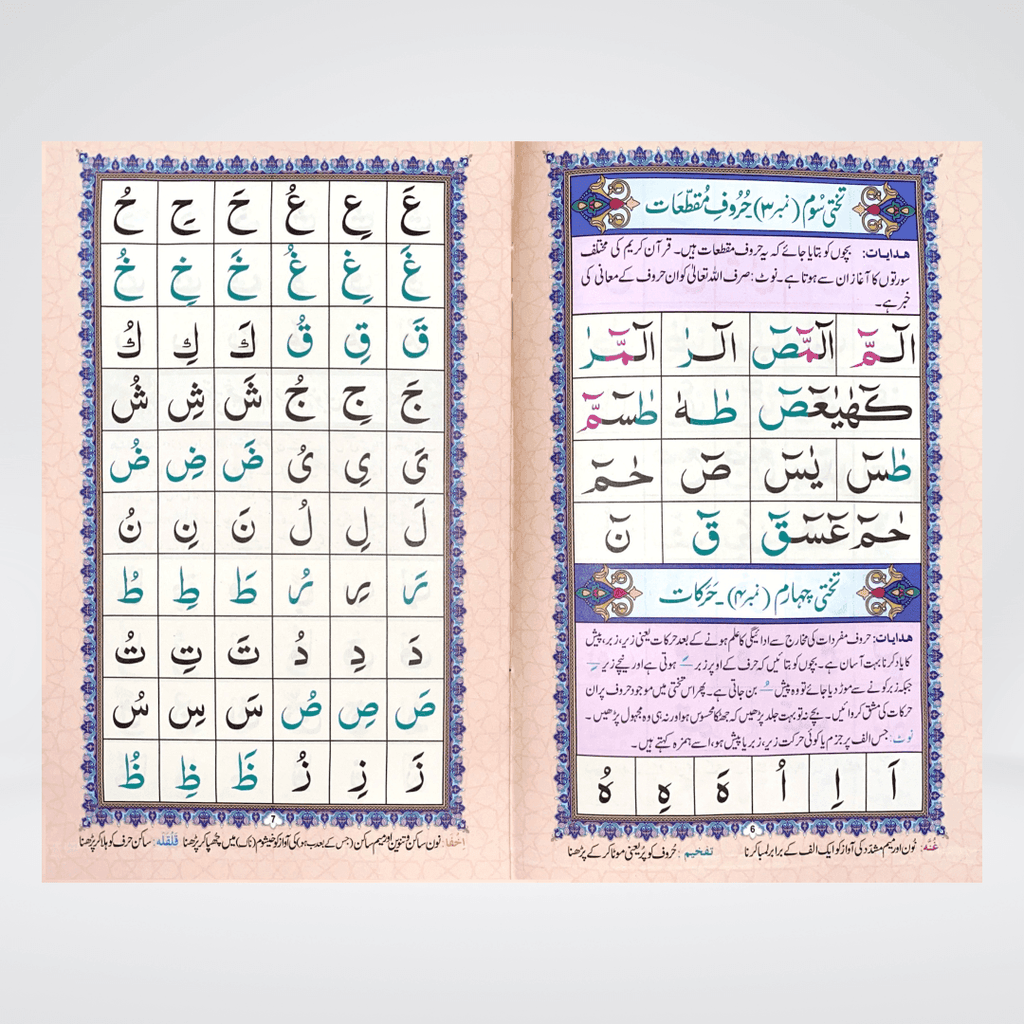 تختی سوم (نمبر ۳) حُرُوفِ مُقَطَّعَات
ھدایات: بچوں کو بتایا جائے کہ یہ حروف مقطعات ہیں۔ قرآن کریم کی مختلف
سورتوں کا آغاز ان سے ہوتا ہے۔ نوٹ: صرف اللہ تعالیٰ کو ان حروف کے معانی کی
خبر ہے۔
الٓـمّٓ الٓمّٓصٓ الٓـرٰ الٓـمّٓـرٰ
كٓهٰيٰعٓصٓ طٰـهٰ طٰسٓمّٓ
طٰسٓ يٰسٓ صٓ حٰمٓ
حٰمٓ عٓسٓقٓ قٓ نٓ
تختی چہارم (نمبر ۴)۔ حَرَکات
ھدایات: حروف مفردات کی مخارج سے ادائیگی کا علم ہونے کے بعد حرکات یعنی زیر، زبر، پیش
کا یاد کرنا بہت آسان ہے۔ بچوں کو بتائیں کہ حرف کے اوپر زبر ـَ ہوتی ہے اور نیچے زیر ـِ
جبکہ زبر کونے سے موڑ دیا جائے تو وہ پیش ـُ بن جاتی ہے۔ پھر اس تختی میں موجود حروف پر ان
حرکات کی مشق کروائیں۔ بچے نہ تو بہت جلد پڑھیں کہ جھٹکا محسوس ہو اور نہ ہی وہ مجہول پڑھیں۔
نوٹ: جس الف پر جزم یا کوئی حرکت زیر، زبر یا پیش ہو، اسے ہمزہ کہتے ہیں۔
اَ اِ اُ هَ هِ هُ
6
غُنّہ: نون اور میم مشدّد کی آواز کو ایک الف کے برابر لمبا کرنا تفخیم: حُروف کو پُر یعنی موٹا کر کے پڑھنا
عَ عِ عُ حَ حِ حُ
غَ غِ غُ خَ خِ خُ
قَ قِ قُ كَ كِ كُ
جَ جِ جُ شَ شِ شُ
ىَ ىِ ىُ ضَ ضِ ضُ
لَ لِ لُ نَ نِ نُ
رَ رِ رُ طَ طِ طُ
دَ دِ دُ تَ تِ تُ
صَ صِ صُ سَ سِ سُ
زَ زِ زُ ظَ ظِ ظُ
7
اِخفا: نون ساکن و تنوین اور میم ساکن (جس کے بعد ب ہو) کی آواز کو خیشوم (ناک) میں چُھپا کر پڑھنا قَلْقَلَہ: ساکن حرف کو ہلا کر پڑھنا